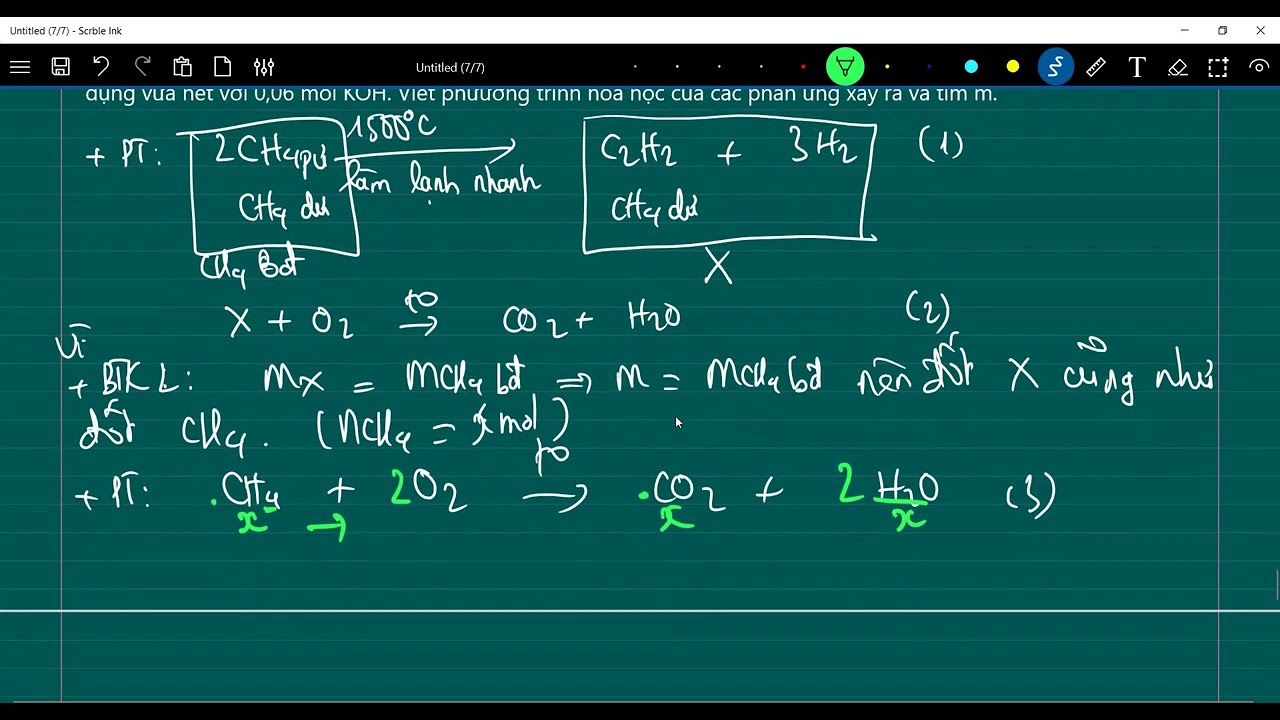 Untitled (7/7) - Scrble Ink
Untitled (7/7)
T
dụng vừa hết với 0,06 mol KOH. Viết phương trình hóa học của các phản ứng xảy ra và tìm m.
+ PT: 2CH4 pứ 1500°C C2H2 + 3H2 (1)
làm lạnh nhanh
CH4 dư CH4 dư
CH4 bđ X
X + O2 t° → CO2 + H2O (2)
Vì
+ BTKL: mX = mCH4 bđ ⇒ m = mCH4 bđ nên đốt X cũng như
đốt CH4. (nCH4 = x mol)
+ PT: CH4 + 2O2 t° → CO2 + 2H2O (3)
x → x x